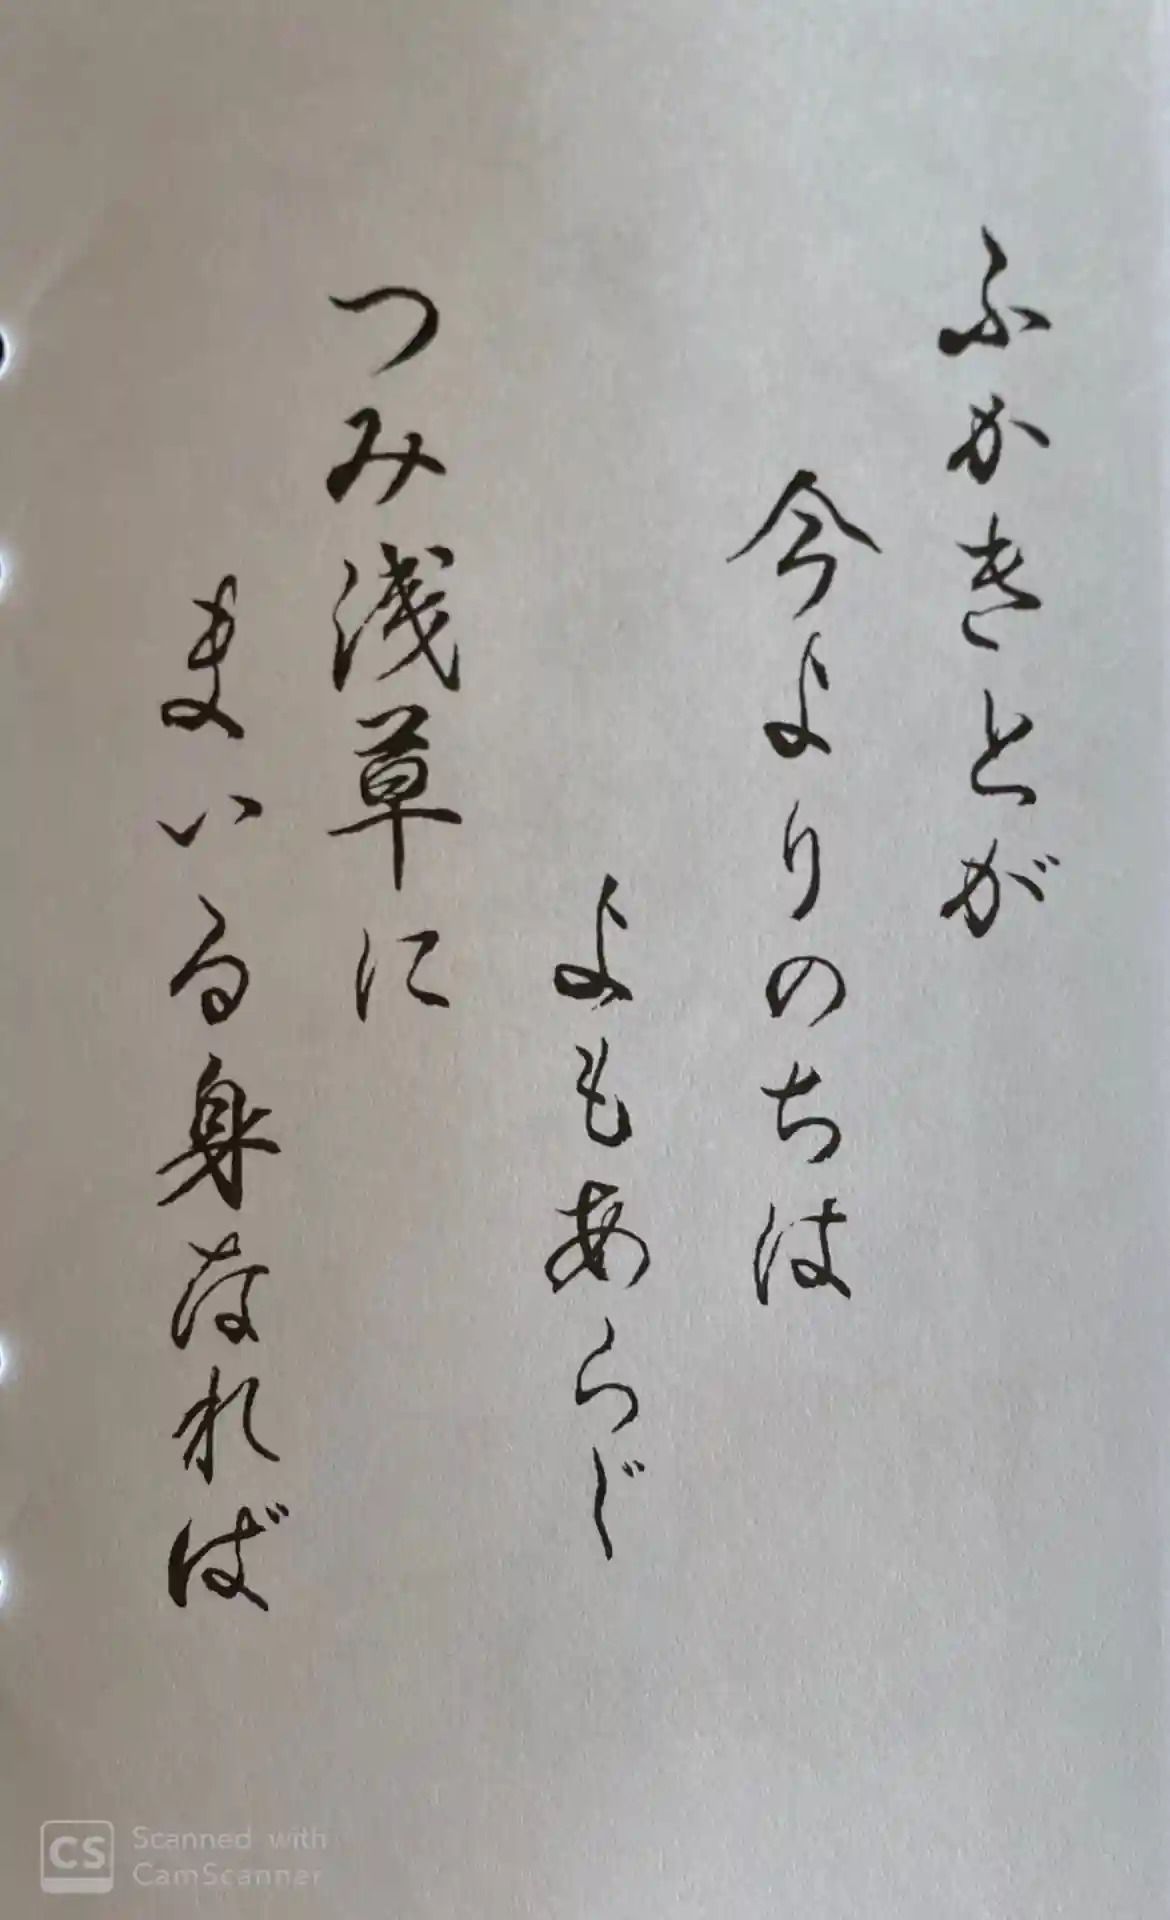 ふかきとが
今よりのちは
よもあらじ
つみ浅草に
まいる身なれば
CS Scanned with
CamScanner